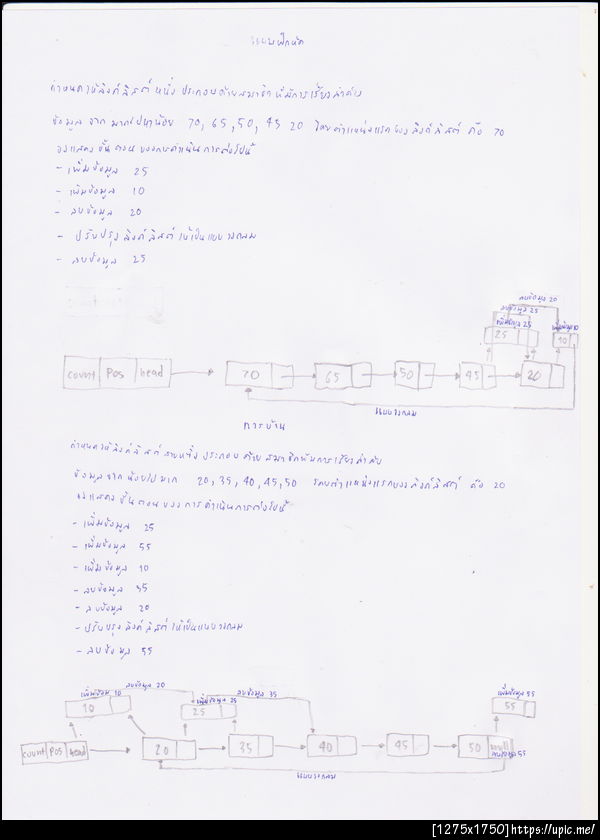 แบบฝึกหัด
กำหนดให้ลิงค์ลิสต์ หนึ่ง ประกอบด้วยสมาชิก ที่มีการเรียงลำดับ
ข้อมูล จาก มากไปหาน้อย 70, 65, 50, 45 20 โดยตำแหน่งแรกของลิงค์ลิสต์ คือ 70
จงแสดง ขั้นตอน ของการดำเนินการต่อไปนี้
- เพิ่มข้อมูล 25
- เพิ่มข้อมูล 10
- ลบข้อมูล 20
- ปรับปรุง ลิงค์ลิสต์ให้เป็นแบบวงกลม
- ลบข้อมูล 25
ลบข้อมูล 20
ลบข้อมูล 25
เพิ่มข้อมูล 25
เพิ่มข้อมูล 10
25
10
count Pos head
70 65 50 45 20
แบบวงกลม
การบ้าน
กำหนดให้ลิงค์ลิสต์สายหนึ่ง ประกอบ ด้วยสมาชิกที่มีการเรียงลำดับ
ข้อมูลจาก น้อยไปมาก 20, 35, 40, 45, 50 โดยตำแหน่งแรกของลิงค์ลิสต์ คือ 20
จงแสดง ขั้นตอน ของการดำเนินการต่อไปนี้
- เพิ่มข้อมูล 25
- เพิ่มข้อมูล 55
- เพิ่มข้อมูล 10
- ลบข้อมูล 35
- ลบข้อมูล 20
- ปรับปรุง ลิงค์ลิสต์ให้เป็นแบบวงกลม
- ลบข้อมูล 55
ลบข้อมูล 20
เพิ่มข้อมูล 10
ลบข้อมูล 35
เพิ่มข้อมูล 25
เพิ่มข้อมูล 55
10
25
55
count Pos head
20 35 40 45 50 null
ลบข้อมูล 55
แบบวงกลม
[1275x1750]https://upic.me/